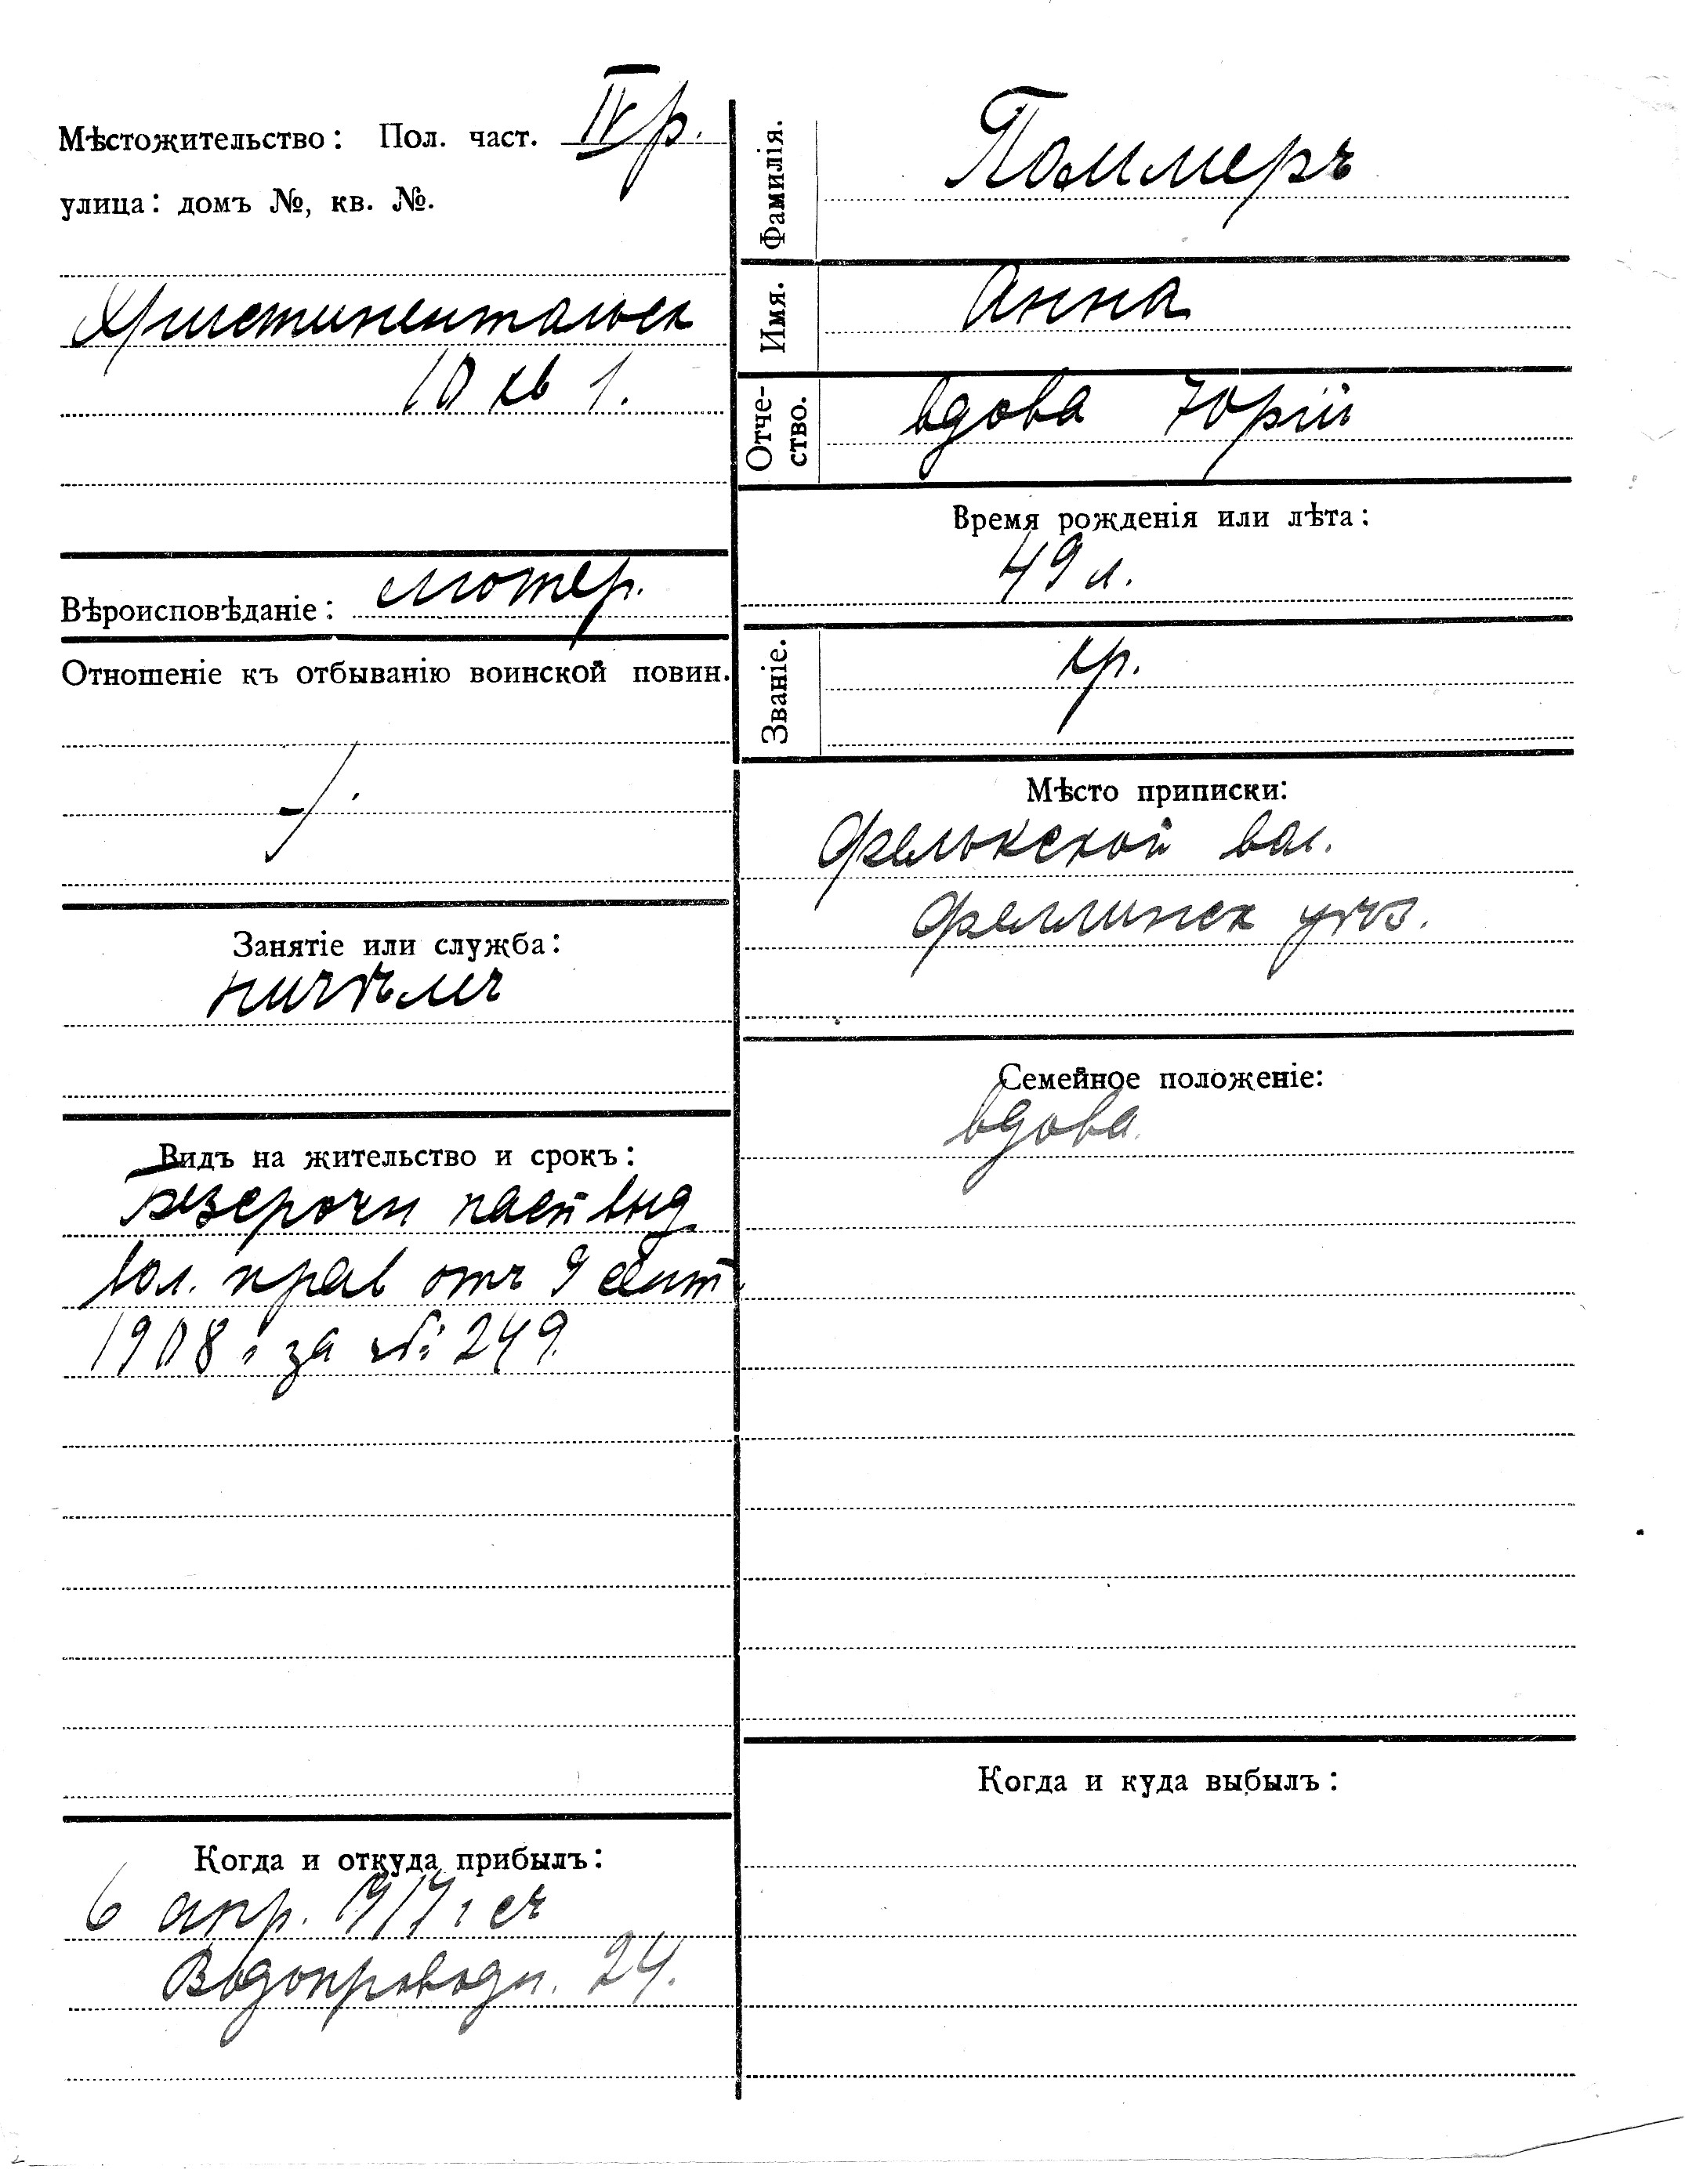 Мѣстожительство: Пол. част. IV р.
улица: домъ №, кв. №.
Христинентальск
10 кв 1.
Вѣроисповѣданіе: лютер.
Отношеніе къ отбыванію воинской повин.
Занятіе или служба:
ничѣмъ
Видъ на жительство и срокъ:
Безсрочн пасп выд
вол. прав отъ 9 сент
1908 г за № 249.
Когда и откуда прибылъ:
6 апр. 1917 г съ
Водопроводн. 24.
Фамилія. Поммеръ
Имя. Анна
Отче-
ство. вдова Юрій
Время рожденія или лѣта:
49 л.
Званіе. кр.
Мѣсто приписки:
Фелькской вол.
Феллинск уѣз.
Семейное положеніе:
вдова.
Когда и куда выбылъ: